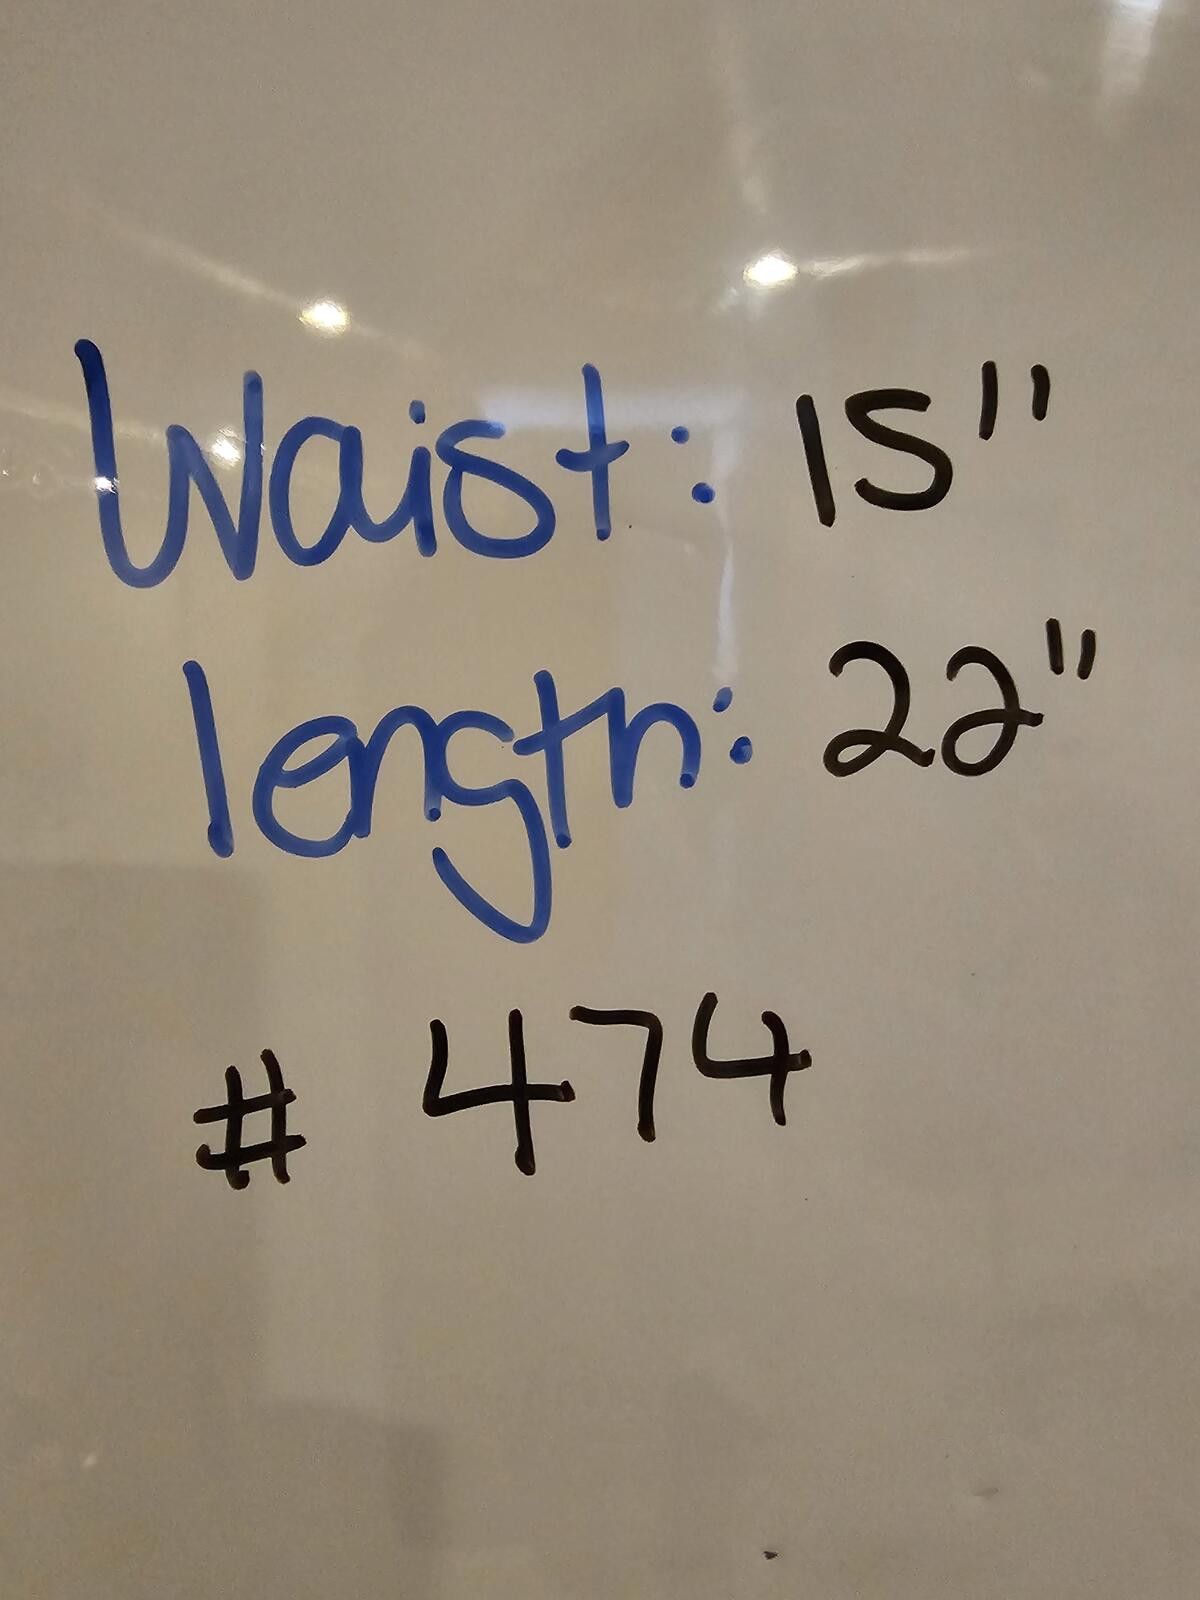 Waist: 15"
length: 22"
# 474